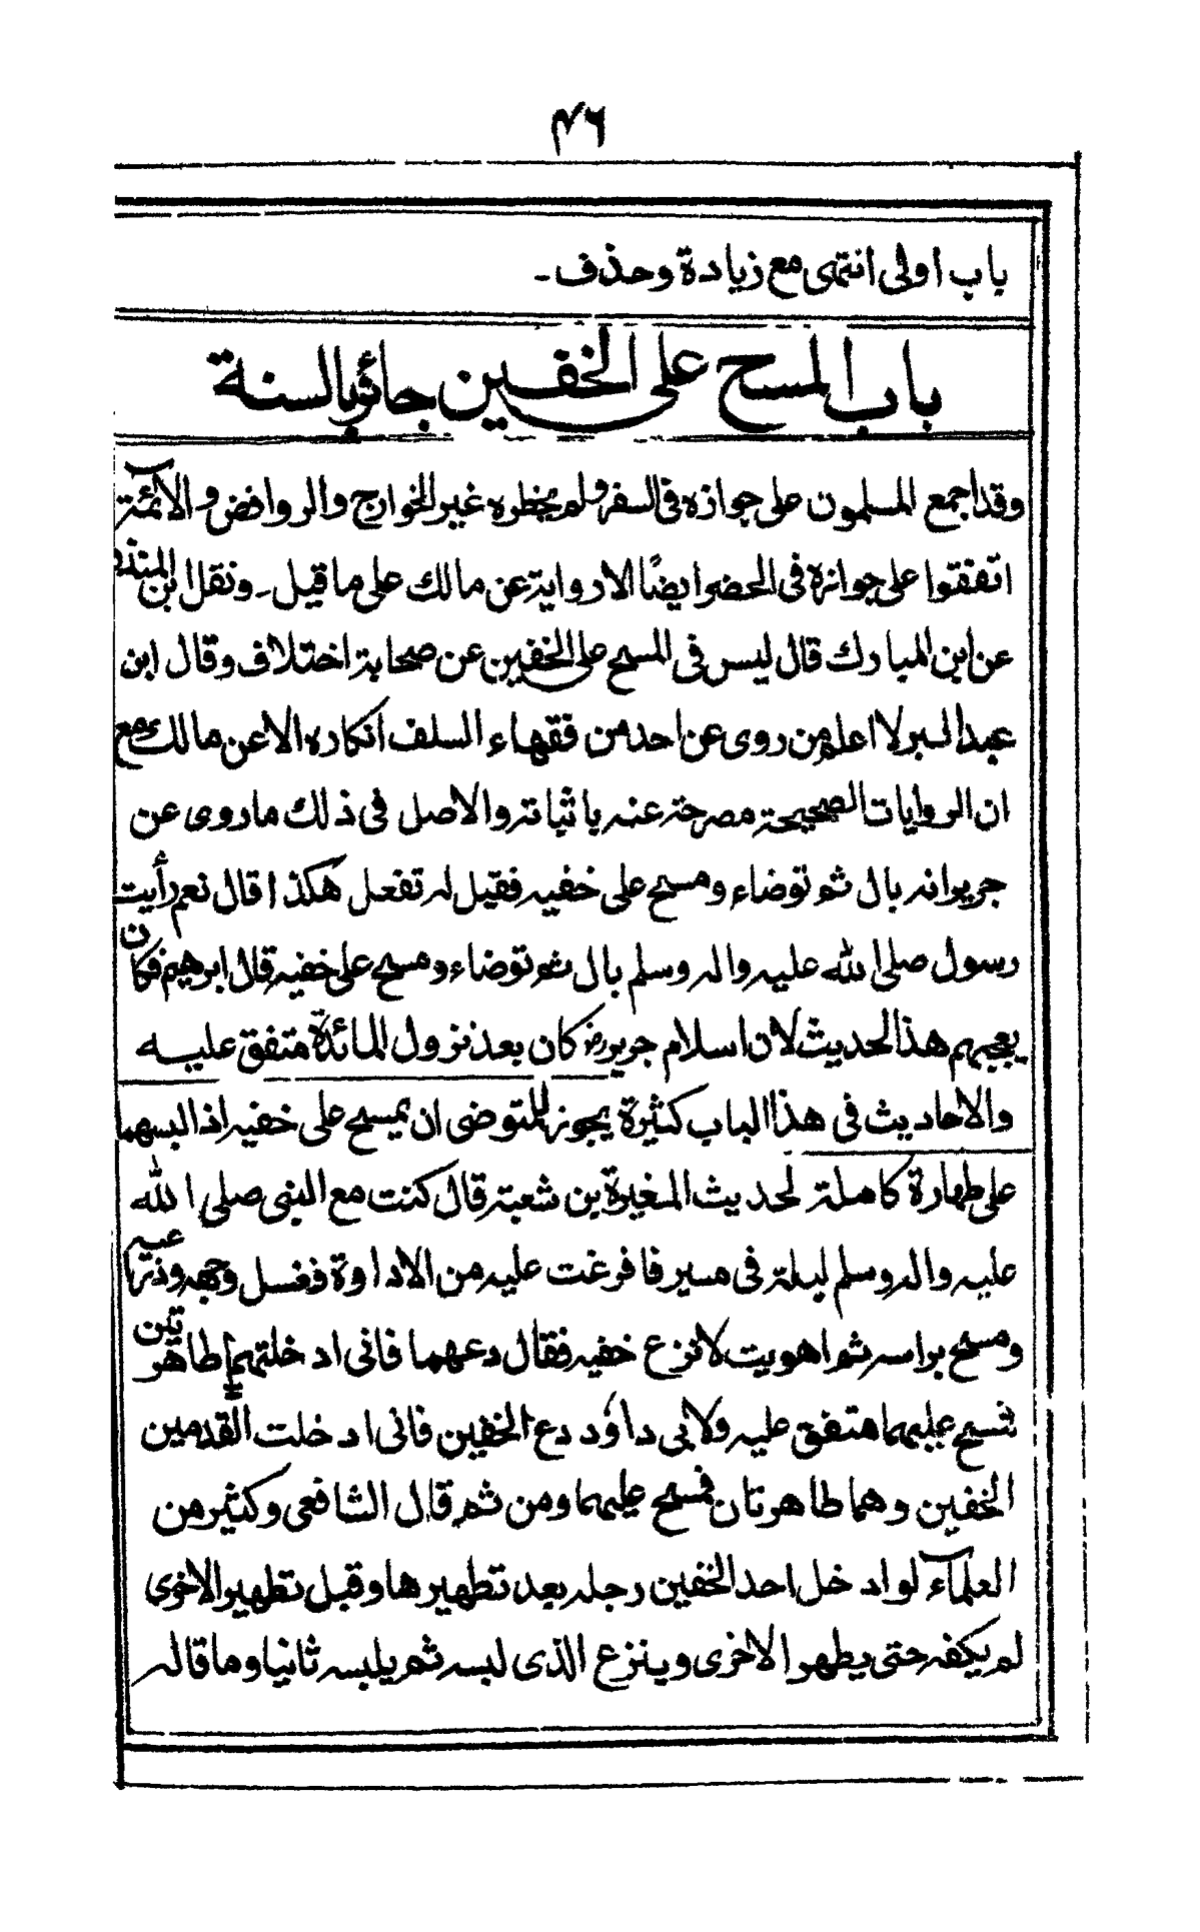 ۴۶
باب اولى انتهى مع زيادة وحذف ۔
باب المسح على الخفين جائز بالسنة
وقد اجمع المسلمون على جوازه فى السفر ولم يحظره غير الخوارج والروافض والآئمة
اتفقوا على جوازه فى الحضر ايضًا الا رواية عن مالك على ما قيل ۔ ونقل ابن المنذر
عن ابن المبارك قال ليس فى المسح على الخفين عن صحابة اختلاف وقال ابن
عبد البر لا اعلم من روى عن احد من فقهاء السلف انكاره الا عن مالك مع
ان الروايات الصحيحة مصرحة عنه باثباته والاصل فى ذلك ما روى عن
جرير انه بال ثم توضاء ومسح على خفيه فقيل له تفعل هكذا قال نعم رأيت
رسول صلى الله عليه واله وسلم بال ثم توضاء ومسح على خفيه قال ابرهيم فكان
يعجبهم هذا الحديث لان اسلام جرير رض كان بعد نزول المائدة متفق عليه
والاحاديث فى هذا الباب كثيرة يجوز للمتوضى ان يمسح على خفيه اذا لبسهما
على طهارة كاملة لحديث المغيرة بن شعبة قال كنت مع النبى صلى الله
عليه واله وسلم ليلة فى مسير فافرغت عليه من الاداوة فغسل وجهه وذراعيه
ومسح براسه ثم اهويت لانزع خفيه فقال دعهما فانى ادخلتهما طاهرتين
فمسح عليهما متفق عليه ولابى داؤد دع الخفين فانى ادخلت القدمين
الخفين وهما طاهرتان فمسح عليهما ومن ثم قال الشافعى وكثير من
العلمآء لو ادخل احد الخفين رجله بعد تطهيرها وقبل تطهير الاخرى
لم يكفه حتى يطهر الاخرى وينزع الذى لبسه ثم يلبسه ثانيا وما قاله